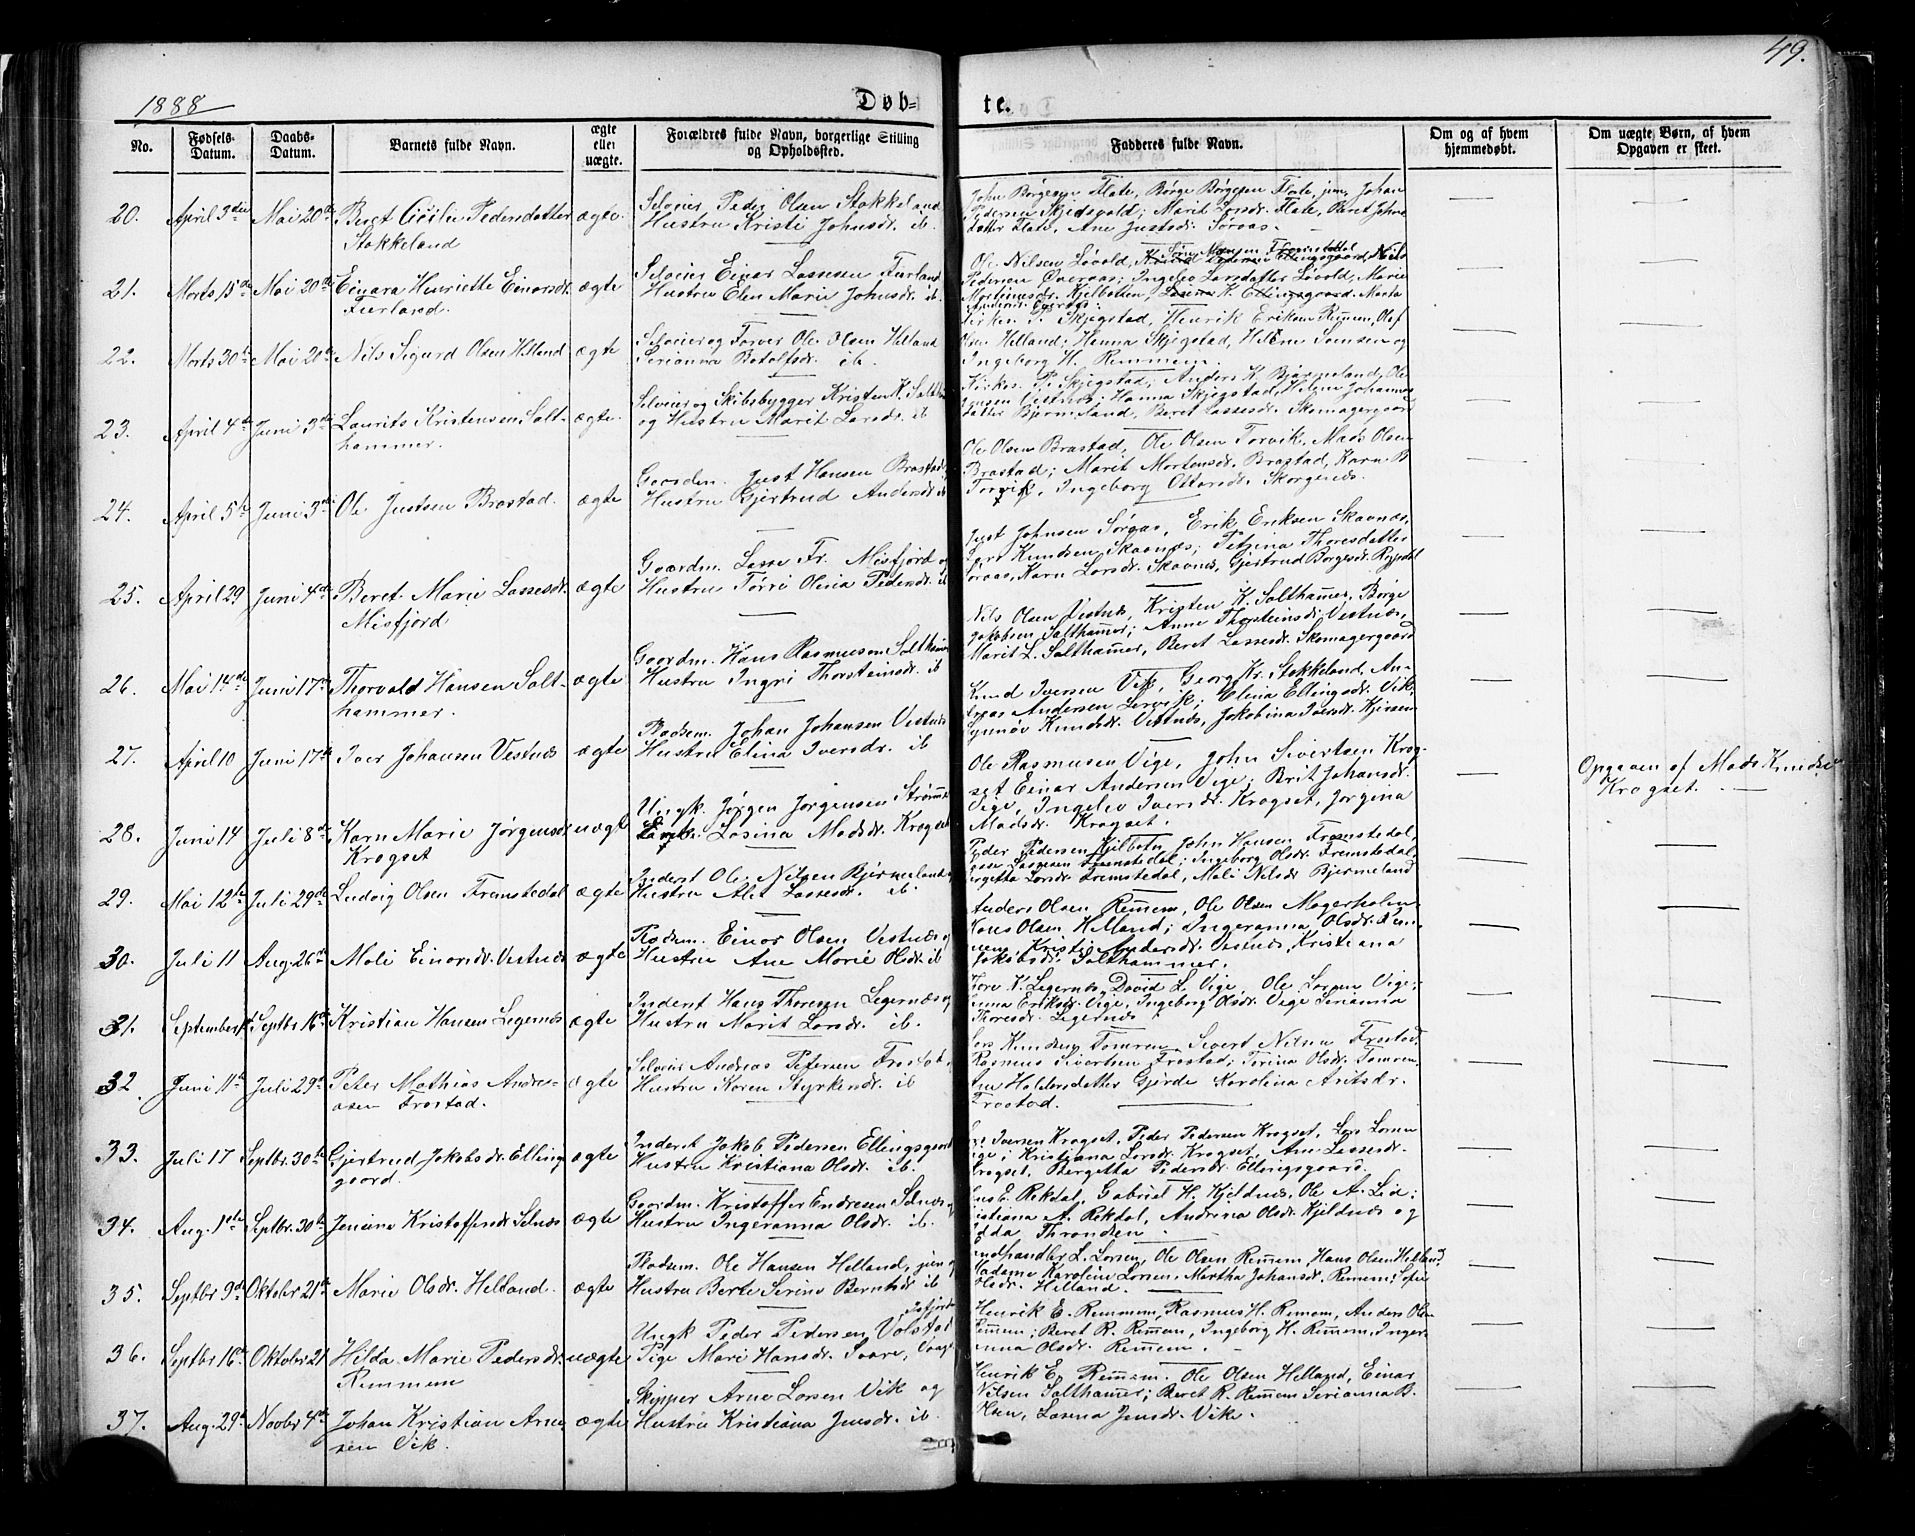 49.
1888
Døb-
te.
No.
Fødsels-
Datum.
Daabs-
Datum.
Barnets fulde Navn.
ægte
eller
uægte.
Forældres fulde Navn, borgerlige Stilling
og Opholdssted.
Fadderes fulde Navn.
Om og af hvem
hjemmedøbt.
Om uægte Børn, af hvem
Opgaven er skeet.
20. April 3die Mai 20de Beret Cicilie Pedersdatter ægte.
Stokkeland
Selveier Peder Olsen Stokkeland
Hustru Kristi Johnsdr. ib.
John Børgesen Flate, Børge Børgesen Flate, jun, Johan
Pedersen Skjedsvold; Marit Larsdr. Flate, Beret Johns
datter Flate, Ane Justsdr. Soraas.
21. Marts 15de Mai 20de Einara Henriette Einarsdr. ægte
Furland.
Selveier Einar Lassesen Furland
Hustru Elen Marie Johnsdr. ib.
Ole Nilsen Løvold, Nils
Pedersen Øveraas, Ingelev Larsdatter Løvold, Marie
Martinusdr. Kjelbotten, Lasina K. Ellingsgaard. Marta
22. Marts 30te Mai 20de Nils Sigurd Olsen Helland ægte
Selveier og Farver Ole Olsen Helland
Serianna Botolfsdr. ib.
Kirkes. P. Skjegstad, Henrik Eriksen Remmen, Olaf
Olsen Helland; Hanna Skjegstad, Helene Jensen og
Ingeborg H. Remmem.
23. April 4de Juni 3die Laurits Kristensen Salt- ægte.
hammer.
Selveier og Skibsbygger Kristen K. Salth
og Hustru Marit Larsdr. ib
Kirkes. P. Skjegstad, Anders K. Bjørmeland, Ole
Jensen Vestnes; Hanna Skjegstad, Helene Johannes
datter Bjørmeland, Beret Lassesdr. Skomagergaard
24. April 5te Juni 3die Ole Justsen Brastad. ægte
Gaardm. Just Hansen Brastad
Hustru Gjertrud Andersdr. ib
Ole Olsen Brastad, Ole Olsen Torvik, Mads Olsen
Brastad; Marit Mortensdr. Brastad, Karn B
Torvik, Ingeborg Ottarsdr. Skorgenes.
25. April 29 Juni 4de Beret Marie Lassesdr. ægte
Misfjord
Gaardm. Lasse Fr. Misfjord og
Hustru Tørri Olina Pedersdr. ib
Just Johnsen Søraas, Erik Eriksen Skavnæs,
Lars Knudsen Skavnæs; Petrina Thoresdatter
Soraas, Karn Larsdr. Skavnes, Gjertrud Børgesdr. Rypdal
26. Mai 14de Juni 17de Thorvald Hansen Salt- ægte
hammer.
Gaardm. Hans Rasmusen Salthamer
Hustru Ingri Thorsteinsdr. ib
Nils Olsen Vestnes, Kristen K. Salthamer, Børge
Jakobsen Salthamer; Anne Thorsteinsdr. Vestnæs,
Marit L. Salthamer, Beret Lassesdr. Skomagergaard
27. April 10 Juni 17de Iver Johansen Vestnes ægte
Pladsm. Johan Johansen Vestnes
Hustru Elina Iversdr. ib
Knud Iversen Vik, Georg Kr. Stokkeland, An-
dreas Andersen Lervik; Elina Ellingsdr. Vik,
Synnøv Knudsdr. Vestnes, Jakobina Iversdr. Kjersem
28. Juni 14 Juli 8de Karn Marie Jørgensdr. uægte
Krogset
Ungk. Jørgen Jørgensen Strømme
Losina Madsdr. Krogset
Ole Rasmusen Vige, John Sivertsen Krog-
set Einar Andersen Vige; Brit Johansdr.
Vige, Ingelev Iversdr. Krogset, Jørgina
Madsdr. Krogset.
Opgaven af Mads Knudsen
Krogset.
29. Mai 12te Juli 29de Ludvig Olsen Fremstedal ægte
Inderst Ole Nilsen Bjermeland
Hustru Alet Lassesdr. ib.
Peder Pedersen Kjelbotn, John Hansen Fremstedal,
Lasse Lassesen Fremstedal; Ingeborg Olsdr. Fremstedal,
Bergitta Larsdr. Fremstedal, Mali Nilsdr. Bjermeland
30. Juli 11 Aug. 26de Mali Einarsdr. Vestnes ægte
Pladsm. Einar Olsen Vestnes og
Hustru Ane Marie Olsdr. ib
Anders Olsen Remem, Ole Olsen Magerholm
Hans Olsen Helland; Ingeranna Olsdr. Rem-
mem, Kristi Andersdr. Vestnes, Kristiana
Jakobsdr. Salthammer.
31. September Septbr. 16de Kristian Hansen Legernes ægte
Inderst Hans Thoresen Legernæs og
Hustru Marit Larsdr. ib.
Tore K. Legernes, David L. Vige, Ole Larsen Vige;
Eriksdr. Vige, Ingeborg Olsdr. Vige Serianna
Thoresdr. Legernes
32 Juni 11te Juli 29de Peter Mathias Andre- ægte
asen Frostad.
Selveier Andreas Petersen Frostad,
Hustru Karen Styrkersdr. ib
Lars Knudsen Tomren, Sivert Nilsen Frostad,
Rasmus Sivertsen Frostad; Torina Olsdr. Tomren,
Ane Haldorsdatter Gjerde Karolina Aritsdr.
Frostad.
33. Juli 17 Septbr. 30te Gjertrud Jakobsdr. Ellings ægte
gaard.
Inderst Jakob Pedersen Ellingsgaard
Hustru Kristiana Olsdr. ib.
Iversen Krogset, Peder Pedersen Krogset, Lars Larsen
Vige; Kristiana Larsdr. Krogset, Ane Lassesdr.
Krogset, Bergetta Pedersdr. Ellingsgaard.
34. Aug. 1ste Septbr. 30te Jensine Kristoffersdr. Selnæs ægte
Gaardm. Kristoffer Endresen Selnæs,
Hustru Ingeranna Olsdr. ib.
E. Rekdal, Gabriel H. Kjeldnes, Ole A. Lia;
Kristiana A. Rekdal, Andrina Olsdr. Kjeldnes og
Thronsen
35. Septbr. 9de Oktober 21de Marie Olsdr. Helland. ægte
Pladsm. Ole Hansen Helland, jun og
Hustru Berte Serine Berntsdr. ib
Landhandler L. Larsen, Ole Olsen Remem, Hans Olsen Helland,
Madame Karoline Larsen, Martha Johansdr. Remem, Sofie
Olsdr. Helland.
36. Septbr. 16de Oktober 21 Hilda Marie Pedersdr. uægte
Remmem
Ungk Peder Pedersen Volstad
Pige Mari Hansdr. Saare,
Henrik E. Remmem, Rasmus H. Remem, Anders Olsen
Remem; Beret R. Remem, Ingeborg H. Remem, Inger
anna Olsdr. Remem.
37. Aug. 29de Novbr 4de Johan Kristian Arne ægte
sen Vik.
Skipper Arne Larsen Vik og
Hustru Kristiana Jensdr. ib
Henrik E. Remem. Ole Olsen Helland, Einar
Nilsen Salthamer; Beret R. Remem Serianna B.
Olsen, Lasena Jensdr. Vik.